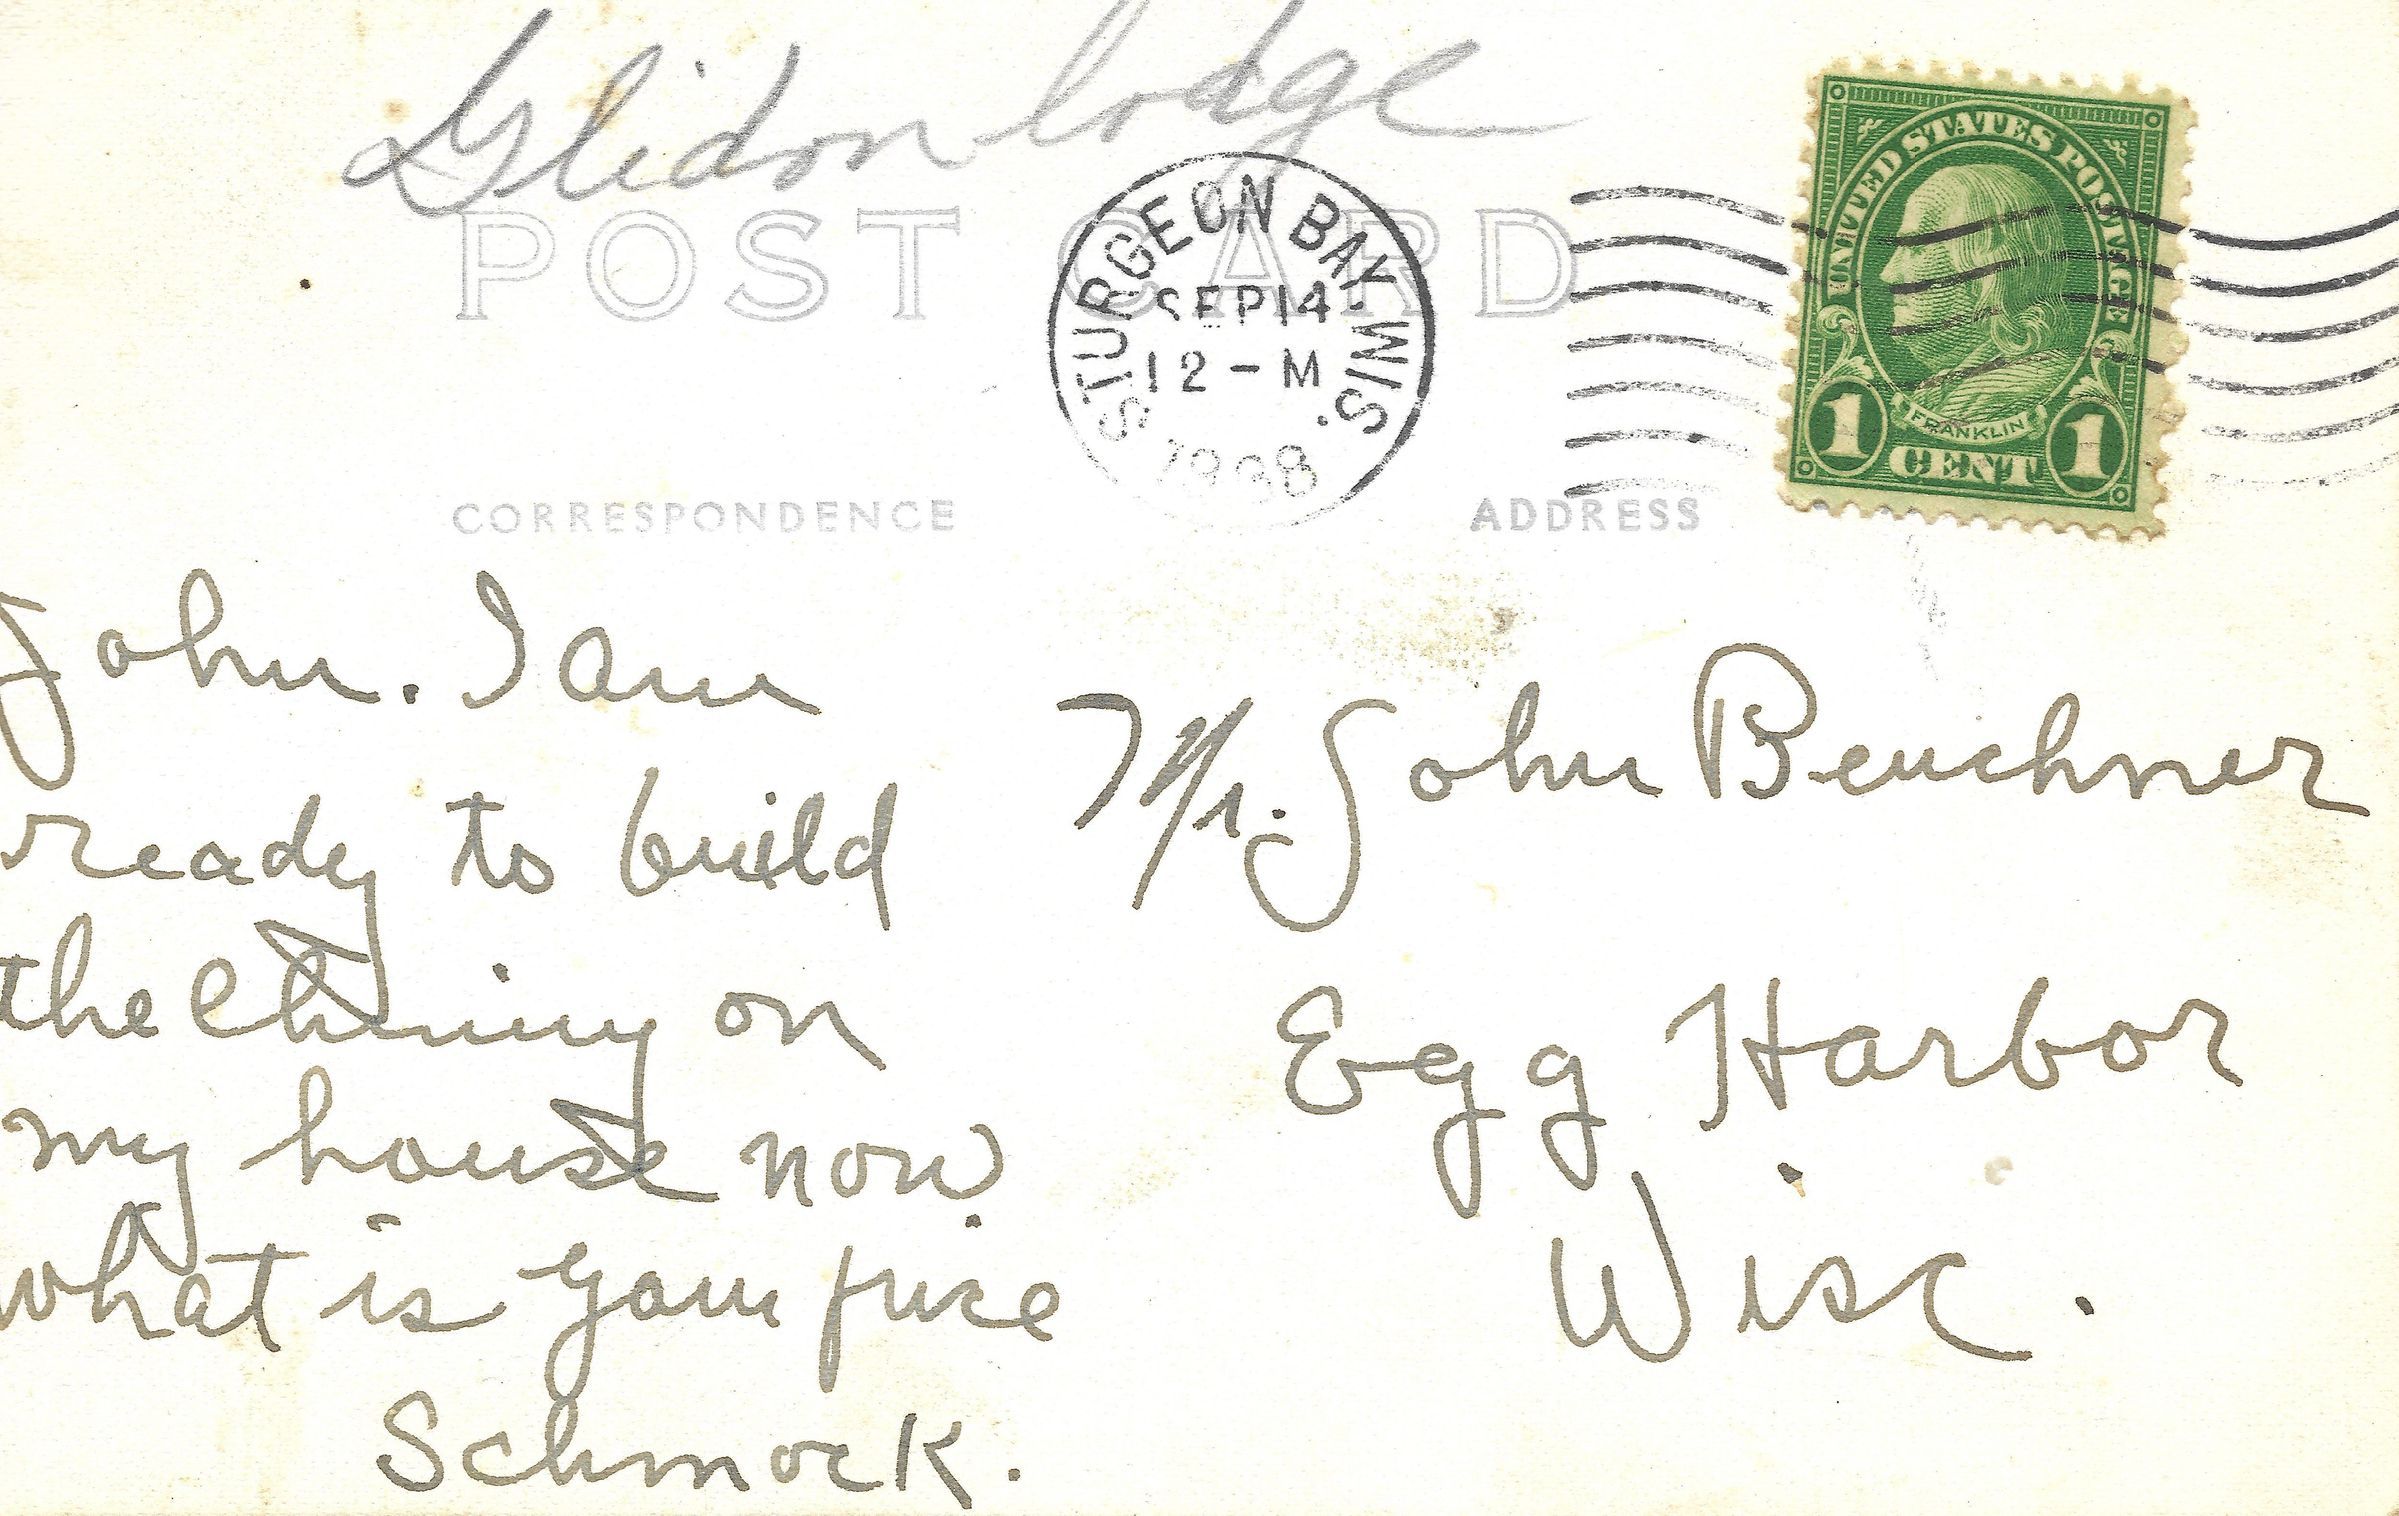 Glidon lodge
POST CARD
STURGEON BAY WIS.
SEP 14
12 - M
1938
UNITED STATES POSTAGE
FRANKLIN
1 CENT 1
CORRESPONDENCE
ADDRESS
John. I am
ready to build
the Chminy on
my house now
what is your price
Schmock.
Mr. John Beuchner
Egg Harbor
Wisc.